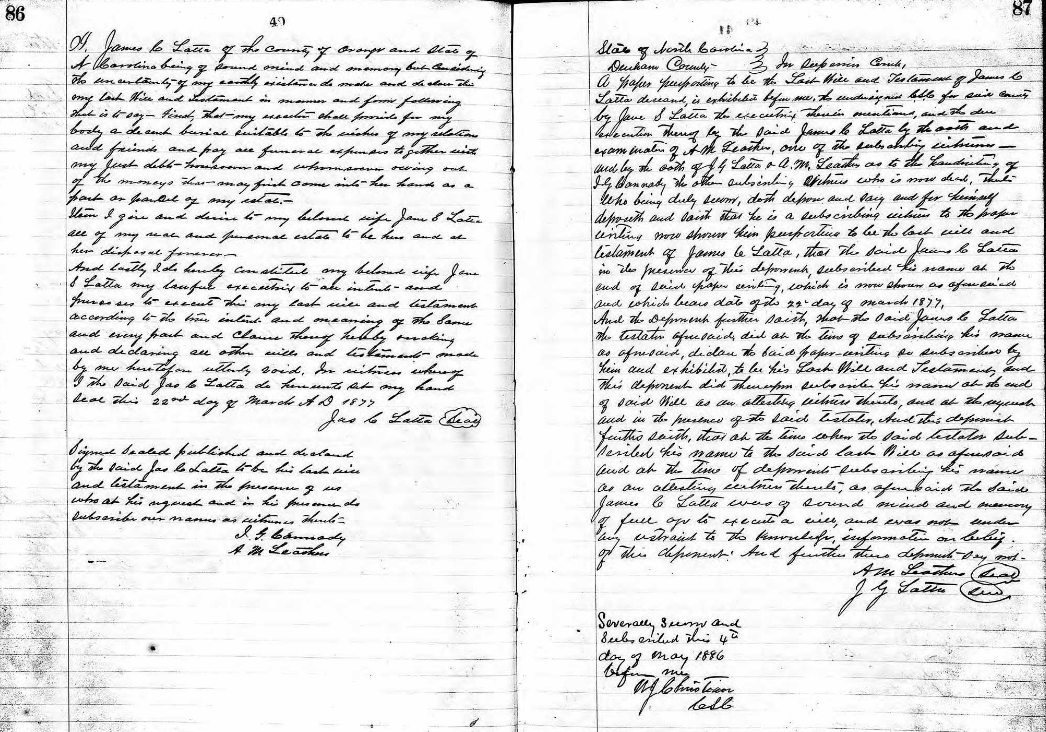 86
49
I, James C Latta of the County of Orange and State of
N Carolina being of sound mind and memory but Considering
the uncertainty of my earthly existance do make and declare this
my last Will and Testament in manner and form following
that is to say - First, that my executor shall provide for my
body a decent burial suitable to the wishes of my relations
and friends and pay all funeral expenses to gether with
my Just debts howsoever and whomsoever owing out
of the moneys that may first come into her hands as a
part or parcel of my estate -
Item I give and devise to my beloved wife Jane S Latta
all of my real and personal estate to be hers and at
her disposal forever -
And lastly I do hereby constitute my beloved wife Jane
S Latta my lawful executrix to all intents and
purposes to execute this my last will and testament
according to the true intent and meaning of the Same
and every part and Clause thereof hereby revoking
and declaring all other wills and testaments made
by me heretofore utterly void. In witness whereof
I the said Jas C Latta do hereunto set my hand
seal this 22nd day of March A D 1877
Jas C Latta (Seal)
Signed sealed published and declared
by the said Jas C Latta to be his last will
and testament in the presence of us
who at his request and in his presence do
subscribe our names as witness thereto
J. G. Cannady
A M Leathers
87
State of North Carolina }
Durham County - } In Superior Court,
A paper purporting to be the Last Will and Testament of James C
Latta deceased, is exhibited before me, the undersigned Clk for said county
by Jane S Latta the executrix therein mentioned, and the due
execution thereof by the said James C Latta by the oath and
examination of A M Leathers, one of the subscribing witnesses -
and by the oath of J G Latta & A. M. Leathers as to the handwriting of
J G Cannady the other subscribing witness who is now dead,
Who being duly sworn, doth depose and say and for himself
deposeth and saith that he is a subscribing witness to the paper
writing now shown him purporting to be the last will and
testament of James C Latta, that the said James C Latta
in the presence of this deponent, subscribed his name at the
end of said paper writing, which is now shown as aforesaid
and which bears date of the 22nd day of march 1877,
And the deponent further saith, that the said James C Latta
the testator aforesaid, did at the time of subscribing his name
as aforesaid, declare the said paper-writing so subscribed by
him and exhibited, to be his Last Will and Testament, and
this deponent did thereupon subscribe his name at the end
of said Will as an attesting witness thereto, and at the request
and in the presence of the said testator, And this deponent
further saith, that at the time when the said testator sub-
scribed his name to the said last Will as aforesaid
and at the time of deponents subscribing his name
as an attesting witness thereto, as aforesaid the said
James C Latta was of sound mind and memory
of full age to execute a will, and was not under
any restraint to the knowledge, information or belief
of this deponent: And further these deponents say not -
A M Leathers (Seal)
J G Latta (Seal)
Severally Sworn and
Subscribed this 4th
day of May 1886
before me,
W J Christian
CSC